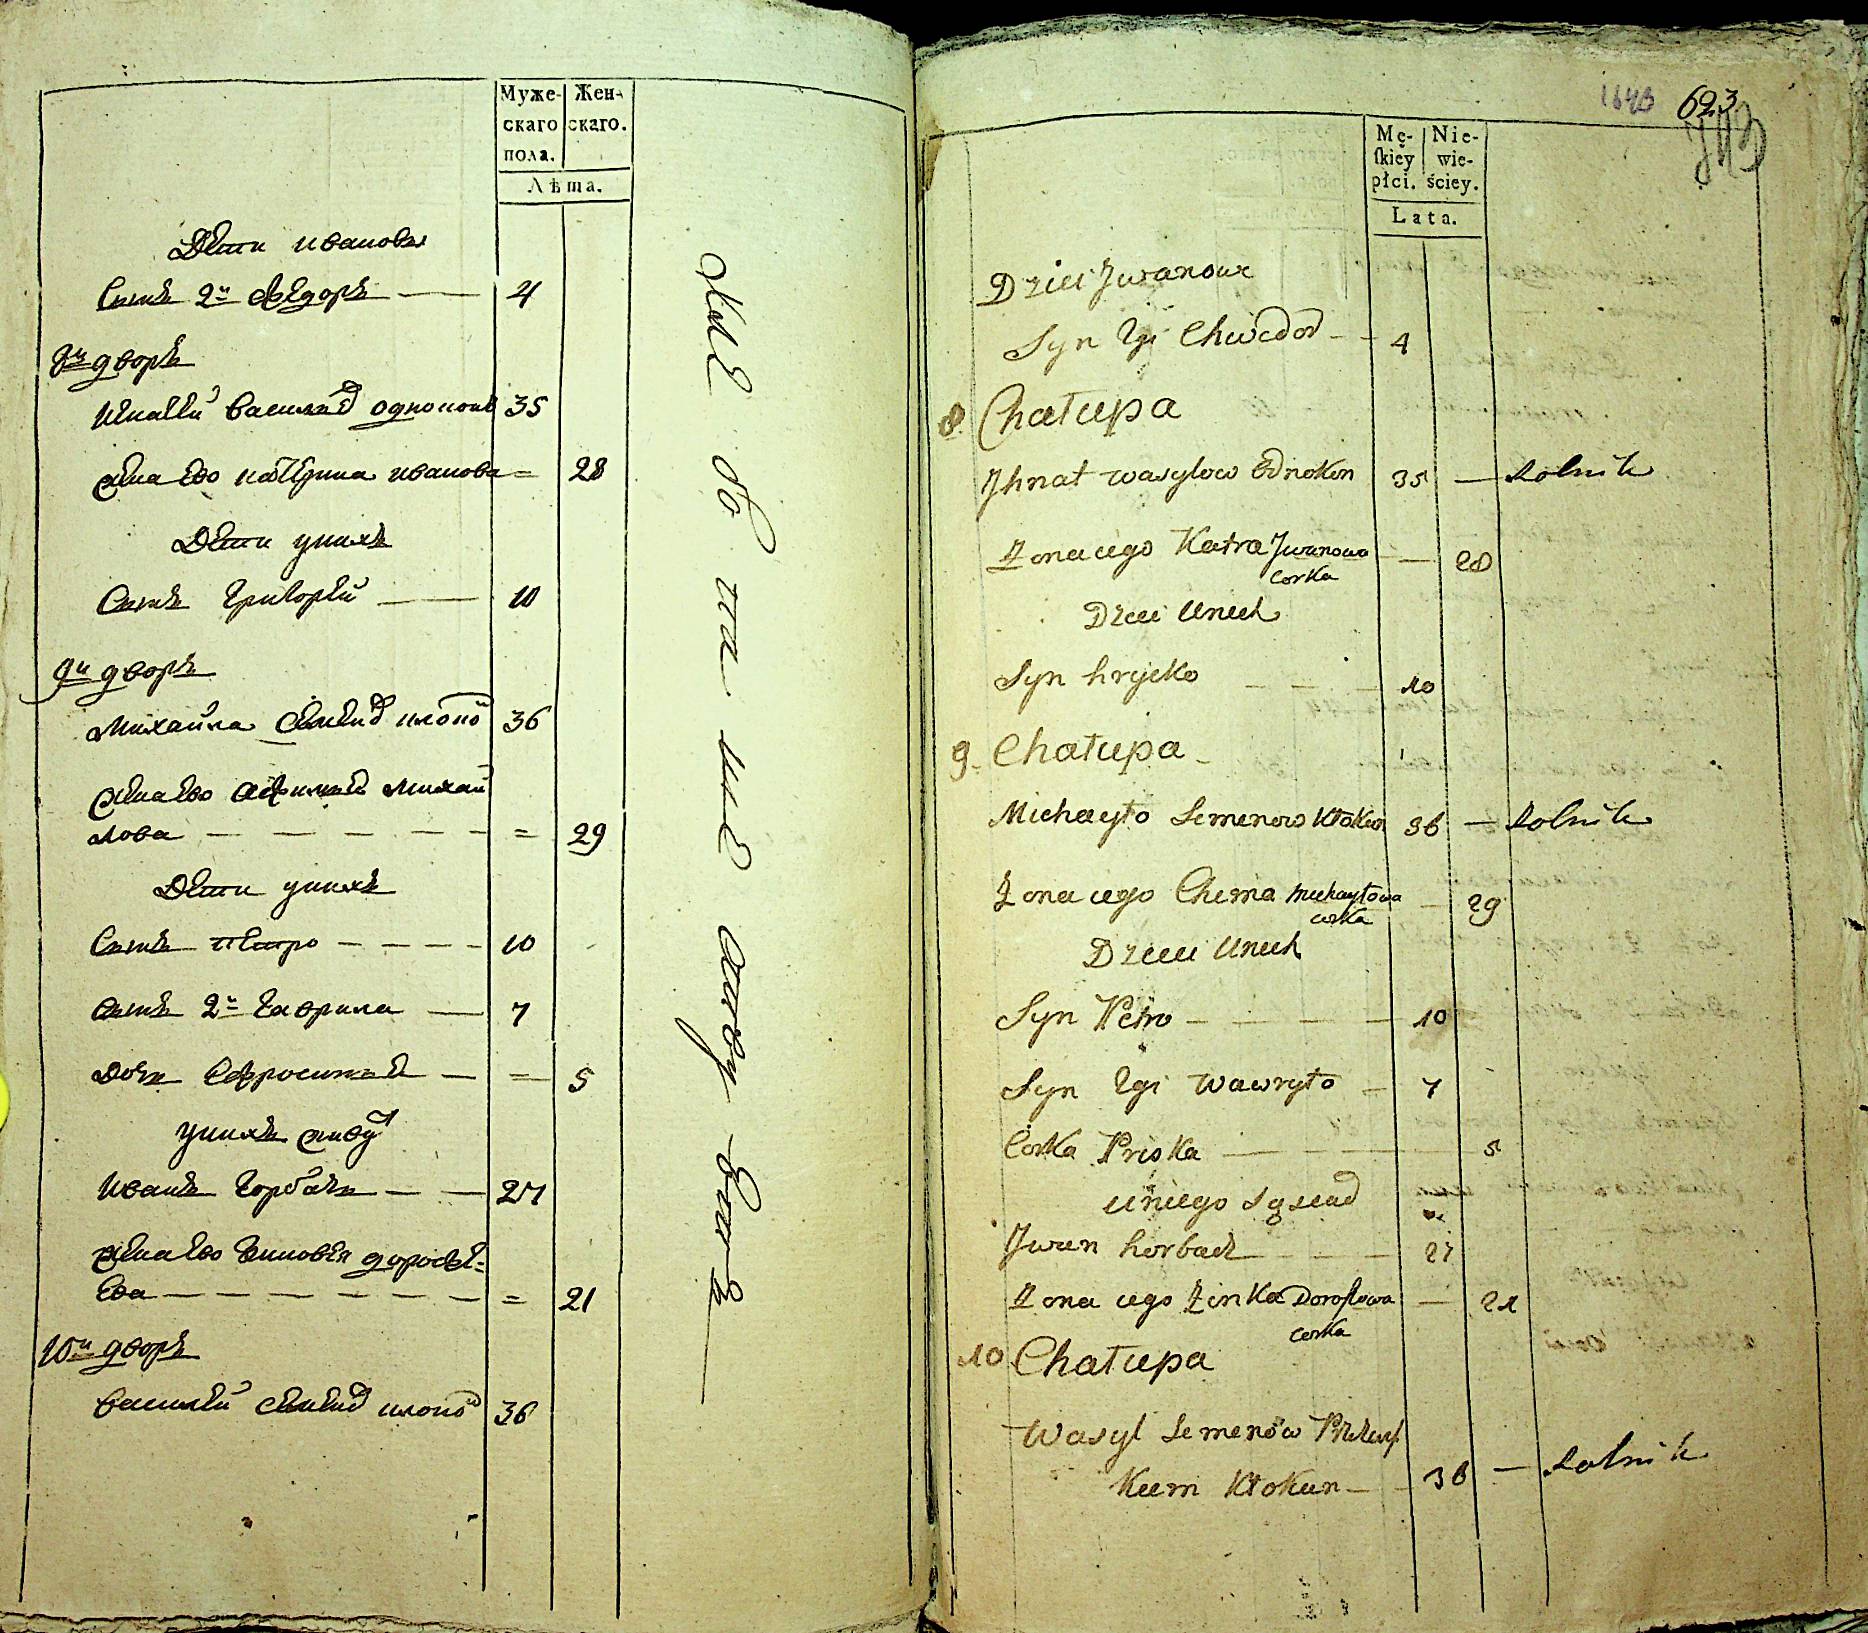 Муже-
скаго
пола.
Жен-
скаго.
Лѣта.
Дети ивановы
Сынъ 2й Ѳедоръ — 4
8й дворъ
Игнатей Василиев одноконъ 35
жена ево катерина иванова = 28
Дети у нихъ
Сынъ Григорей — 10
9й дворъ
Михайла Семенов клокой 36
жена ево Афимия Михай
лова — — — — — — = 29
Дети у нихъ
Сынъ петро — — — — 10
Сынъ 2й Гаврила — 7
Дочь Ефросиния — = 5
у нихъ живут
Иванъ Горбачь — — 27
жена ево Зиновея дорофе=
ева — — — — — — = 21
10й дворъ
Василей Семенов клокой 36
1643
623
Mę-
skiey
płci.
Nie-
wie-
ściey.
Lata.
Dzieci Jwanowe
Syn 2gi Chwedor - - 4
8 Chałupa
Jhnat wasylow Odnokon 35 — Rolnik
Zona iego Katra Jwanowa — 28
corka
Dzieci Unich
Syn hrycko — — — 10
9 Chałupa
Michayło Semenow Kłokun 36 — Rolnik
Zona iego Chima Michayłowa — 29
corka
Dzieci Unich
Syn Petro — — — — 10
Syn 2gi wawryło — 7
Corka Priska — — — — 5
Uniego Sąsiad
Jwan horbacz — — — 27
Zona iego Zinka Doroftowa — 21
corka
10 Chałupa
Wasyl Semenow
Kłokun — — 36 — Rolnik